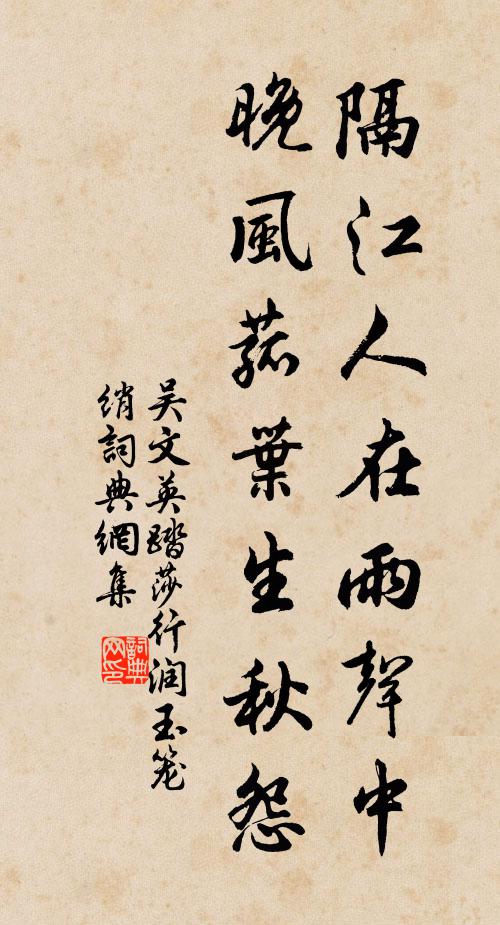 隔江人在雨聲中
晚風菰葉生秋怨
吴文英踏莎行润玉笼
绡詞典網集
詞典网印